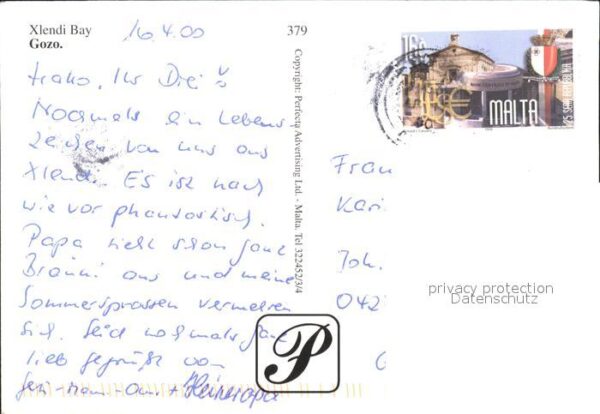 Xlendi Bay
Gozo.
16.4.00
379
Hallo, Ihr Drei
Nochmals ein Lebens-
zeichen von uns aus
Xlendi. Es ist nach
wie vor phantastisch.
Papa sieht schon ganz
Bräunl. aus und meine
Sommersprossen vermehren
sich. Seid nochmals ganz
lieb gegrüßt von
+ Heineropa
Copyright: Perfecta Advertising Ltd. - Malta. Tel 322452/3/4
P
16c
MALTA
Frau
Kari
Joh.
042
privacy protection
Datenschutz